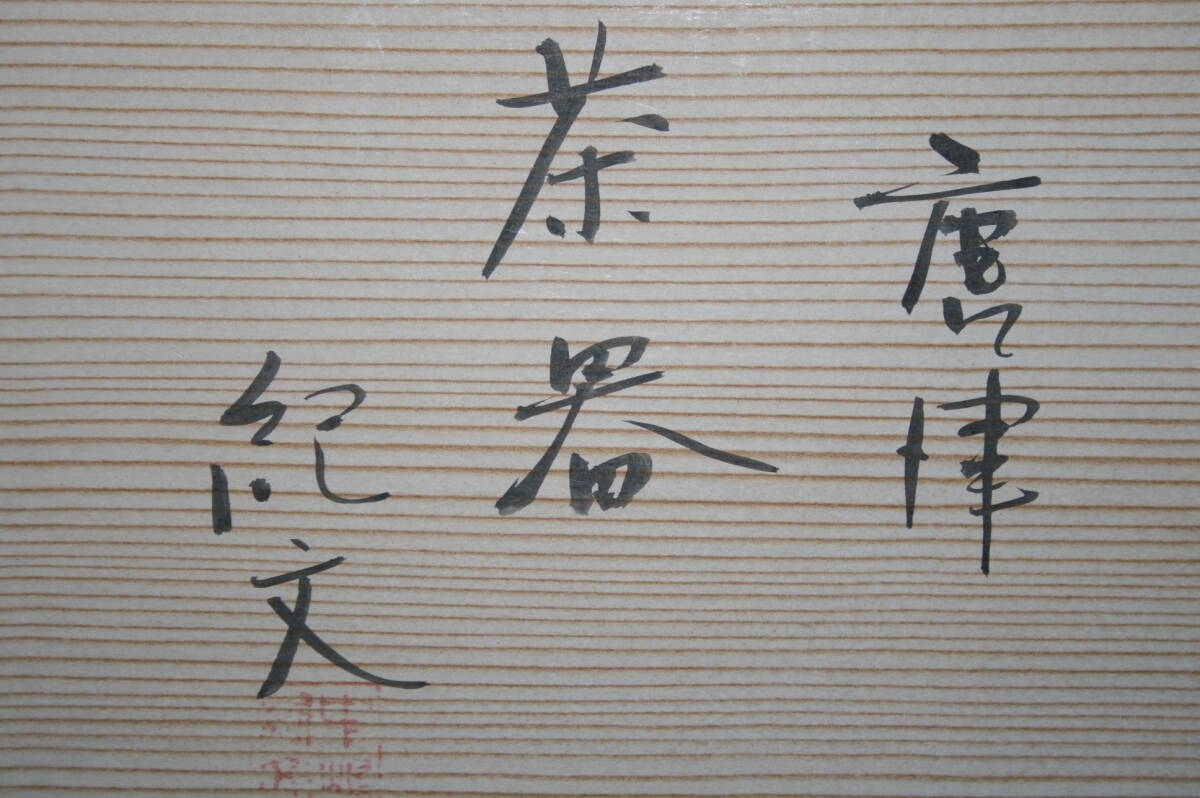 唐津
茶器
紀文